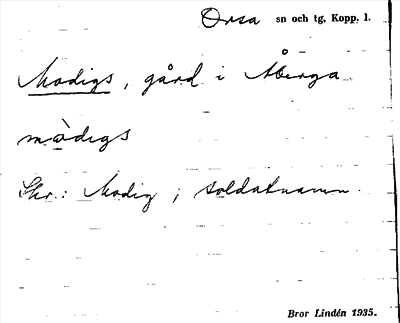 Orsa sn och tg, Kopp. l.
Modigs, gård i Åberga.
mòdigs
Skr.: Modig ; soldatnamn.
Bror Lindén 1935.